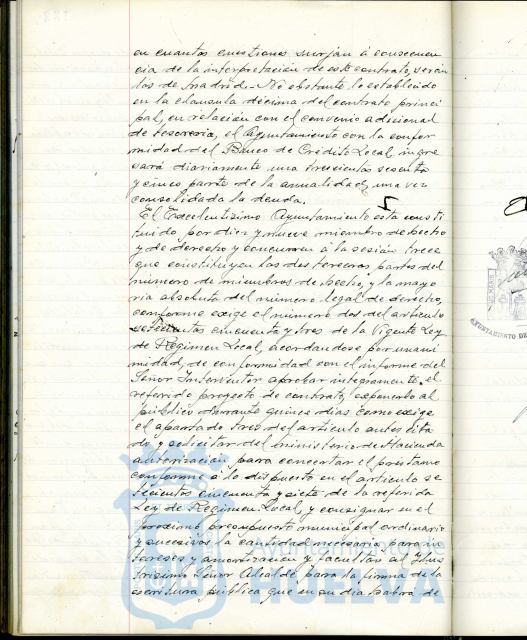 en cuantas cuestiones surjan á consecuen
cia de la interpretación de este contrato, serán
los de Madrid.- No obstante lo establecido
en la clausula décima del contrato princi
pal, en relación con el convenio adicional
de tesoreria, el Ayuntamiento con la confor
midad del Banco de Crédito Local ingre
sará diariamente una trescientas sesenta
y cinco parte de la anualidad, una vez
consolidada la deuda.
El Excelentísimo Ayuntamiento está consti
tuido por diez y nueve miembros de hecho
y de derecho y concurren á la sesión trece
que constituyen las dos terceras partes del
número de miembros de hecho, y la mayo
ria absoluta del número legal de derecho,
conforme exige el número dos del artículo
setecientos cincuenta y tres de la Vigente Ley
de Régimen Local, acordandose por unani
midad, de conformidad con el informe del
Señor Interventor aprobar integramente el
referido proyecto de contrato, exponerlo al
público durante quince dias como exige
el apartado tres del artículo antes cita
do y solicitar del Ministerio de Hacienda
autorización para concertar el prestamo
conforme á lo dispuesto en el articulo se
tecientos cincuenta y siete de la referida
Ley de Régimen Local, y consignar en el
próximo presupuesto municipal ordinario
y sucesivos la cantidad necesaria para in
tereses y amortización y facultar al Ilus
trísimo Señor Alcalde para la firma de la
escritura pública que en su dia habrá de
AYUNTAMIENTO DE
Ayuntamiento de
HUELVA